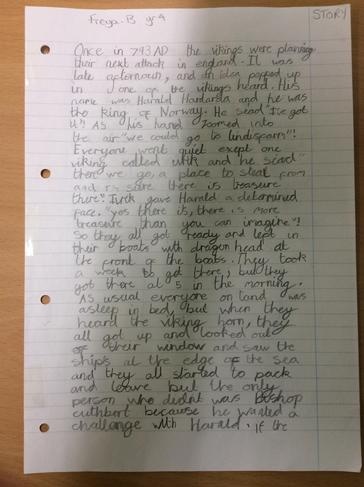 Freya.B yr4
STORY
Once in 793AD the vikings were planning
their next attack in england. It was
late afternoon, and an idea popped up
in one of the vikings heard. His
name was Harald Hardarda and he was
the king of Norway. He sead "I've got
it"! As his hand zoomed into
the air "we could go to lindisparn"!
Everyone went quiet exept one
viking called Ulrik and he siead"
there we go, a place to steal from
and is sure there is treasure
there". gave Harald a determined
face. "yes there is, there is more
treasure than you can imagine"!
So they all got ready and lept in
their boats with dragon head at
the front of the boats. They took
a week to get there, but they
got there at 5 in the morning.
As usual everyone on land was
asleep in bed, but when they
heard the viking horn, they
all got up and looked out
of their window and saw the
ships at the edge of the sea
and they all started to pack
and leave but the only
person who didnt was bishop
cuthbort because he wanted a
challenge with Harald. If the